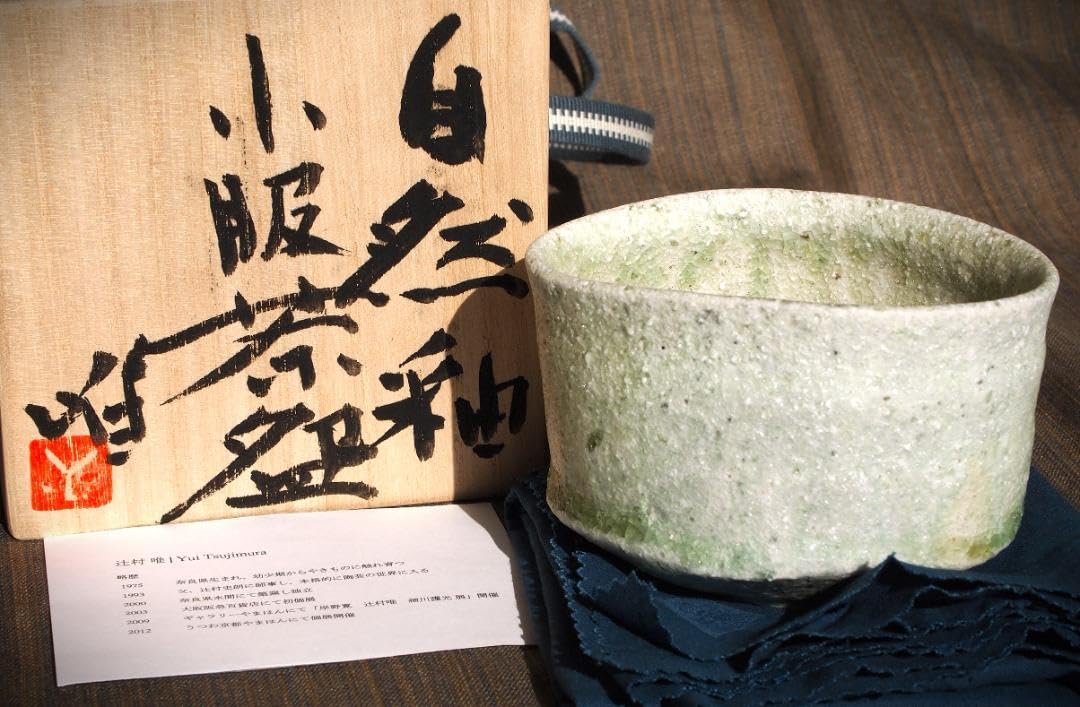 自然釉
小服茶盌
唯
Y
辻村 唯 | Yui Tsujimura
略歴
1975 奈良県生まれ、幼少期からやきものに触れ育つ
1993 父、辻村史朗に師事し、本格的に陶芸の世界に入る
2000 奈良県水間にて築窯し独立
2003 大阪阪急百貨店にて初個展
2009 ギャラリーやまほんにて「岸野寛 辻村唯 細川護光 展」開催
2012 うつわ京都やまほんにて個展開催